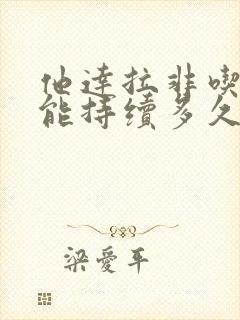 他達拉非喫
能持續多久
梁愛平